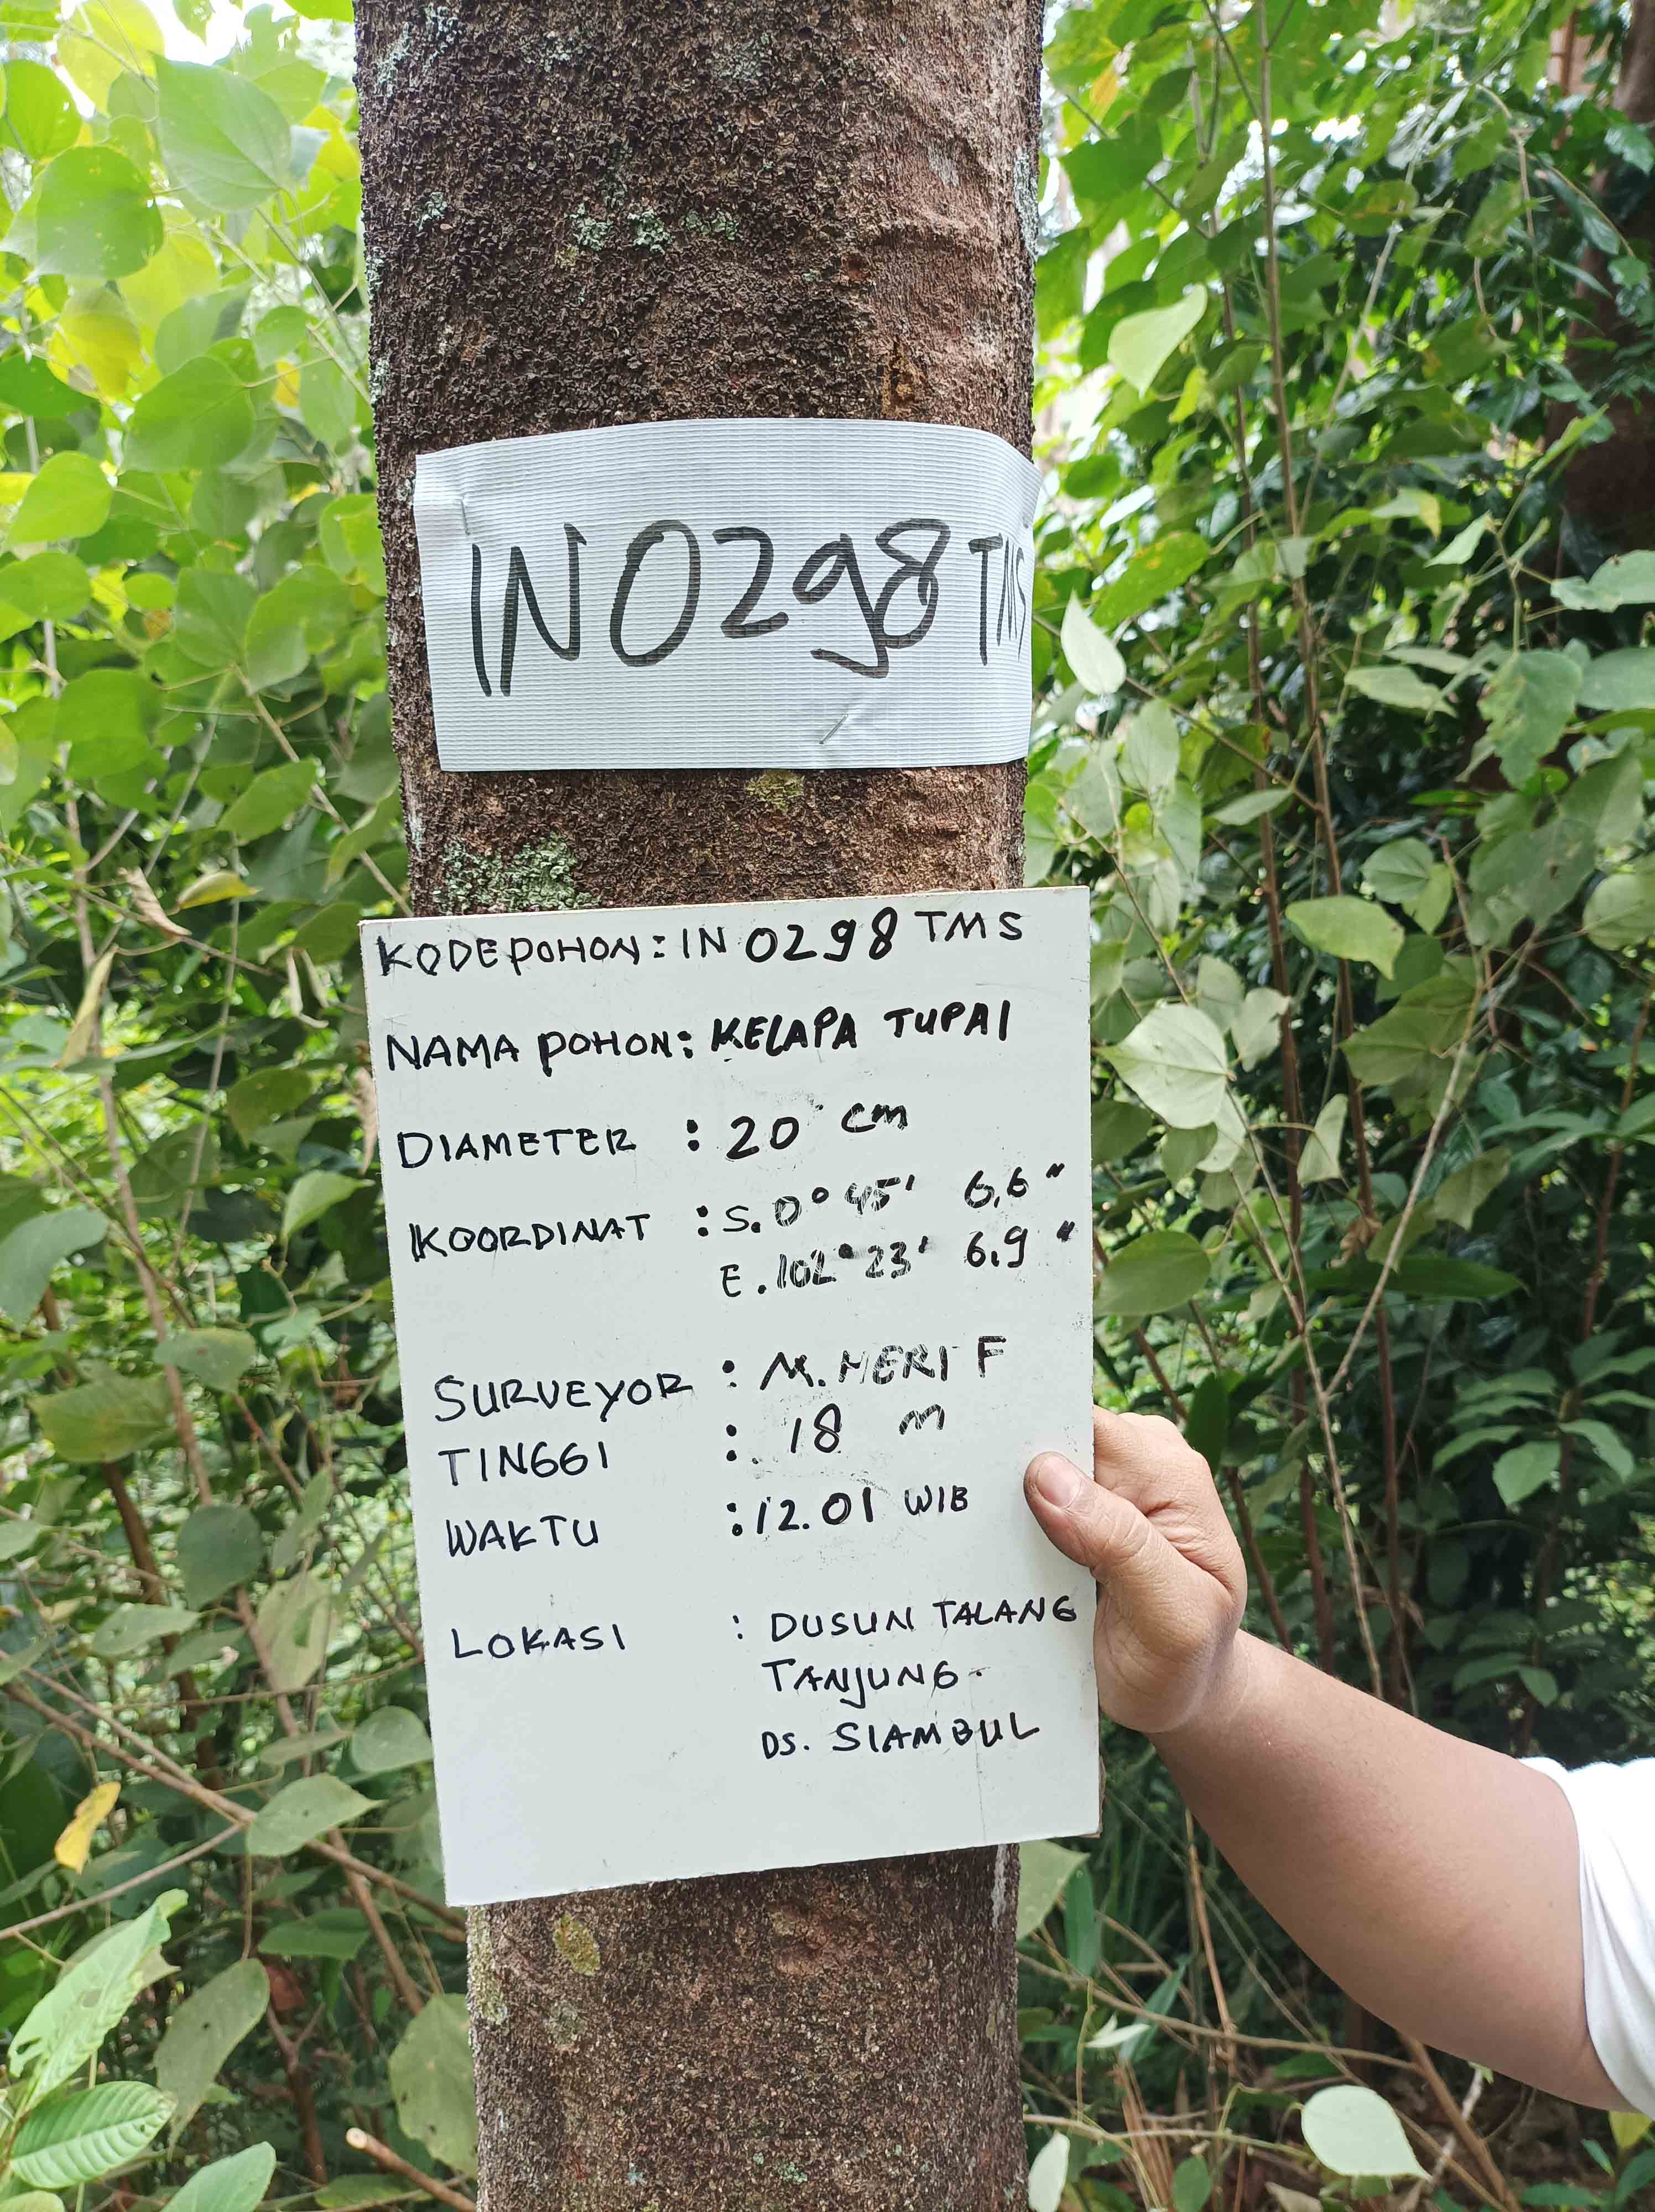 IN 0298 TMS
KODE POHON : IN 0298 TMS
NAMA POHON : KELAPA TUPAI
DIAMETER : 20 cm
KOORDINAT : S. 0° 45' 6,6"
E. 102° 23' 6,9"
SURVEYOR : M. HERI F
TINGGI : 18 m
WAKTU : 12.01 WIB
LOKASI : DUSUN TALANG
TANJUNG.
DS. SIAMBUL